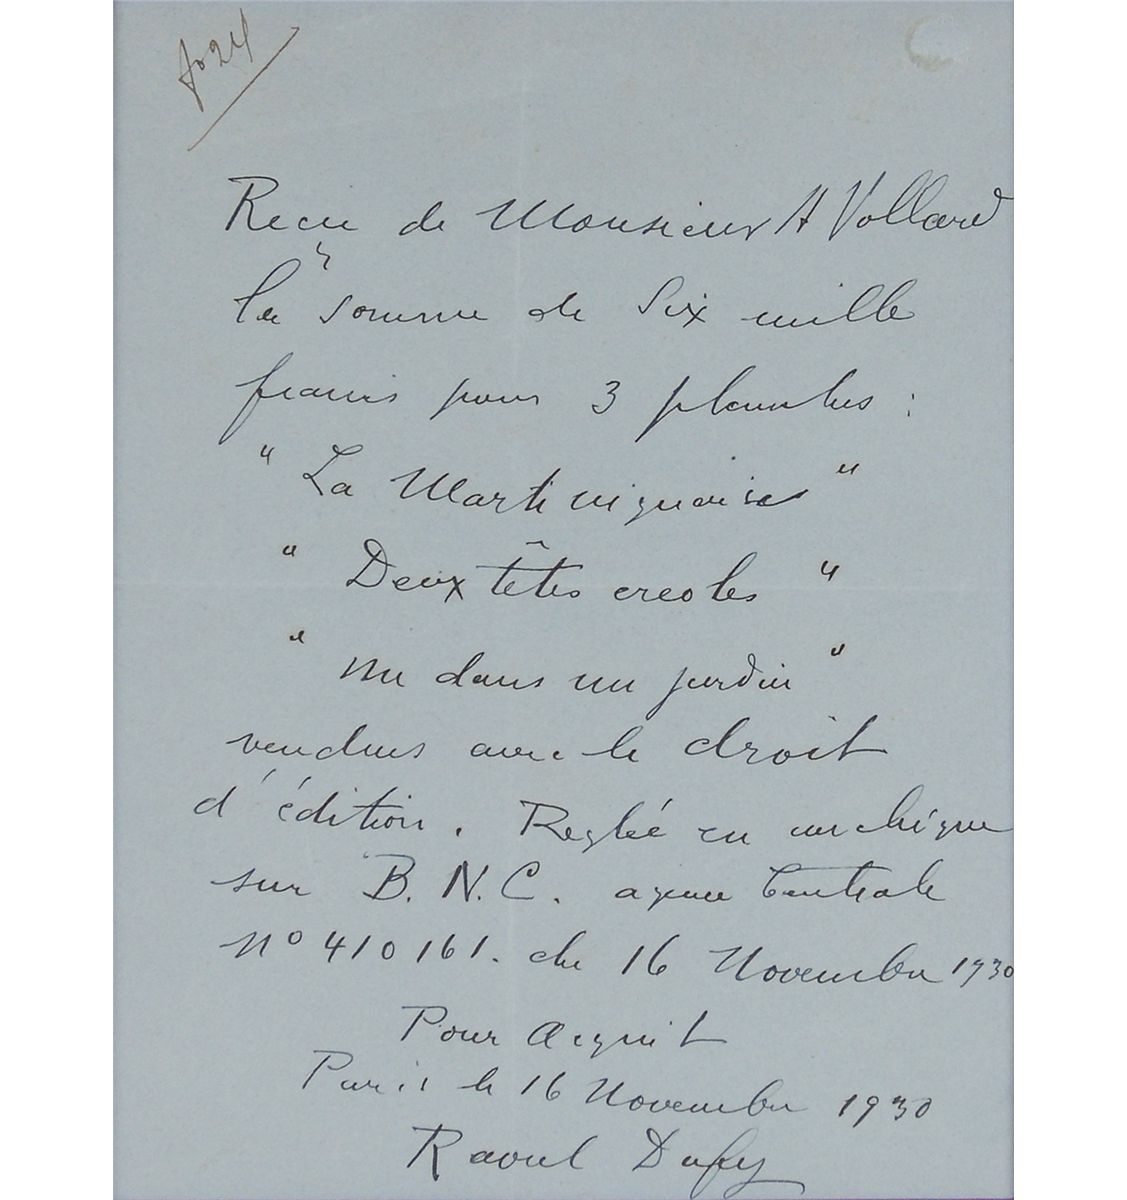 Reçu de Monsieur A Vollard
la somme de Six mille
francs pour 3 planches :
" La Martiniquaise "
" Deux têtes creoles "
" nu dans un jardin "
vendues avec le droit
d'édition. Reglée en un chèque
sur B. N. C. agence Centrale
No 410161. du 16 Novembre 1930
Pour Acquit
Paris le 16 Novembre 1930
Raoul Dufy